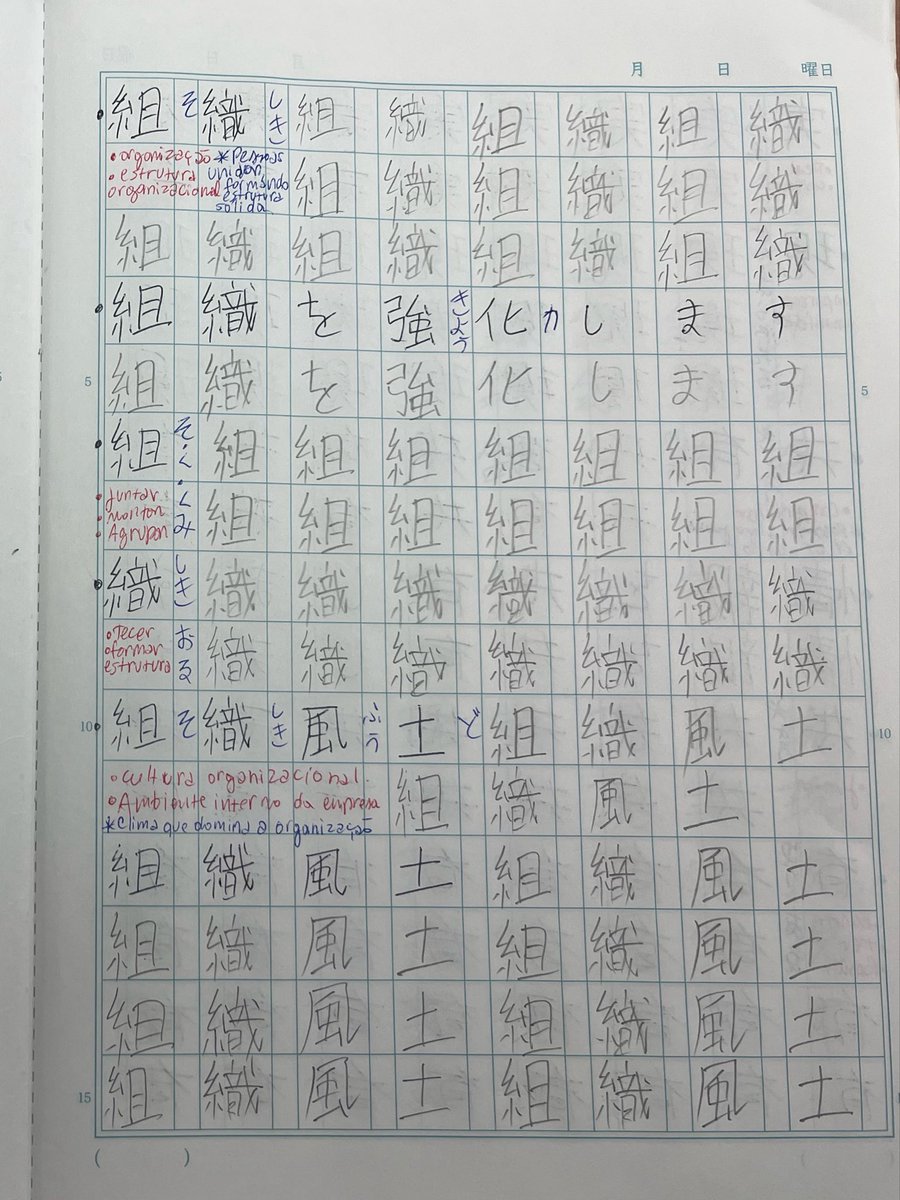 月 日 曜日
組 そ 織 しき 組 織 組 織 組 織
• organização
• estrutura organizacional
*Pessoas unidas formando estrutura sólida
組 織 組 織 組 織
組 織 組 織 組 織 組 織
組 織 を 強 きょう 化 か し ま す
5 組 織 を 強 化 し ま す 5
組 そ・くみ・く 組 組 組 組 組 組 組
• Juntar
• Montar
• Agrupar
組 組 組 組 組 組 組
織 しき 織 織 織 織 織 織 織
• Tecer
• formar estrutura
おる 織 織 織 織 織 織 織
10 組 そ 織 しき 風 ふう 土 ど 組 織 風 土 10
• Cultura organizacional.
• Ambiente interno da empresa
*Clima que domina a organização
組 織 風 土
組 織 風 土 組 織 風 土
組 織 風 土 組 織 風 土
組 織 風 土 組 織 風 土
15 組 織 風 土 組 織 風 土
( )